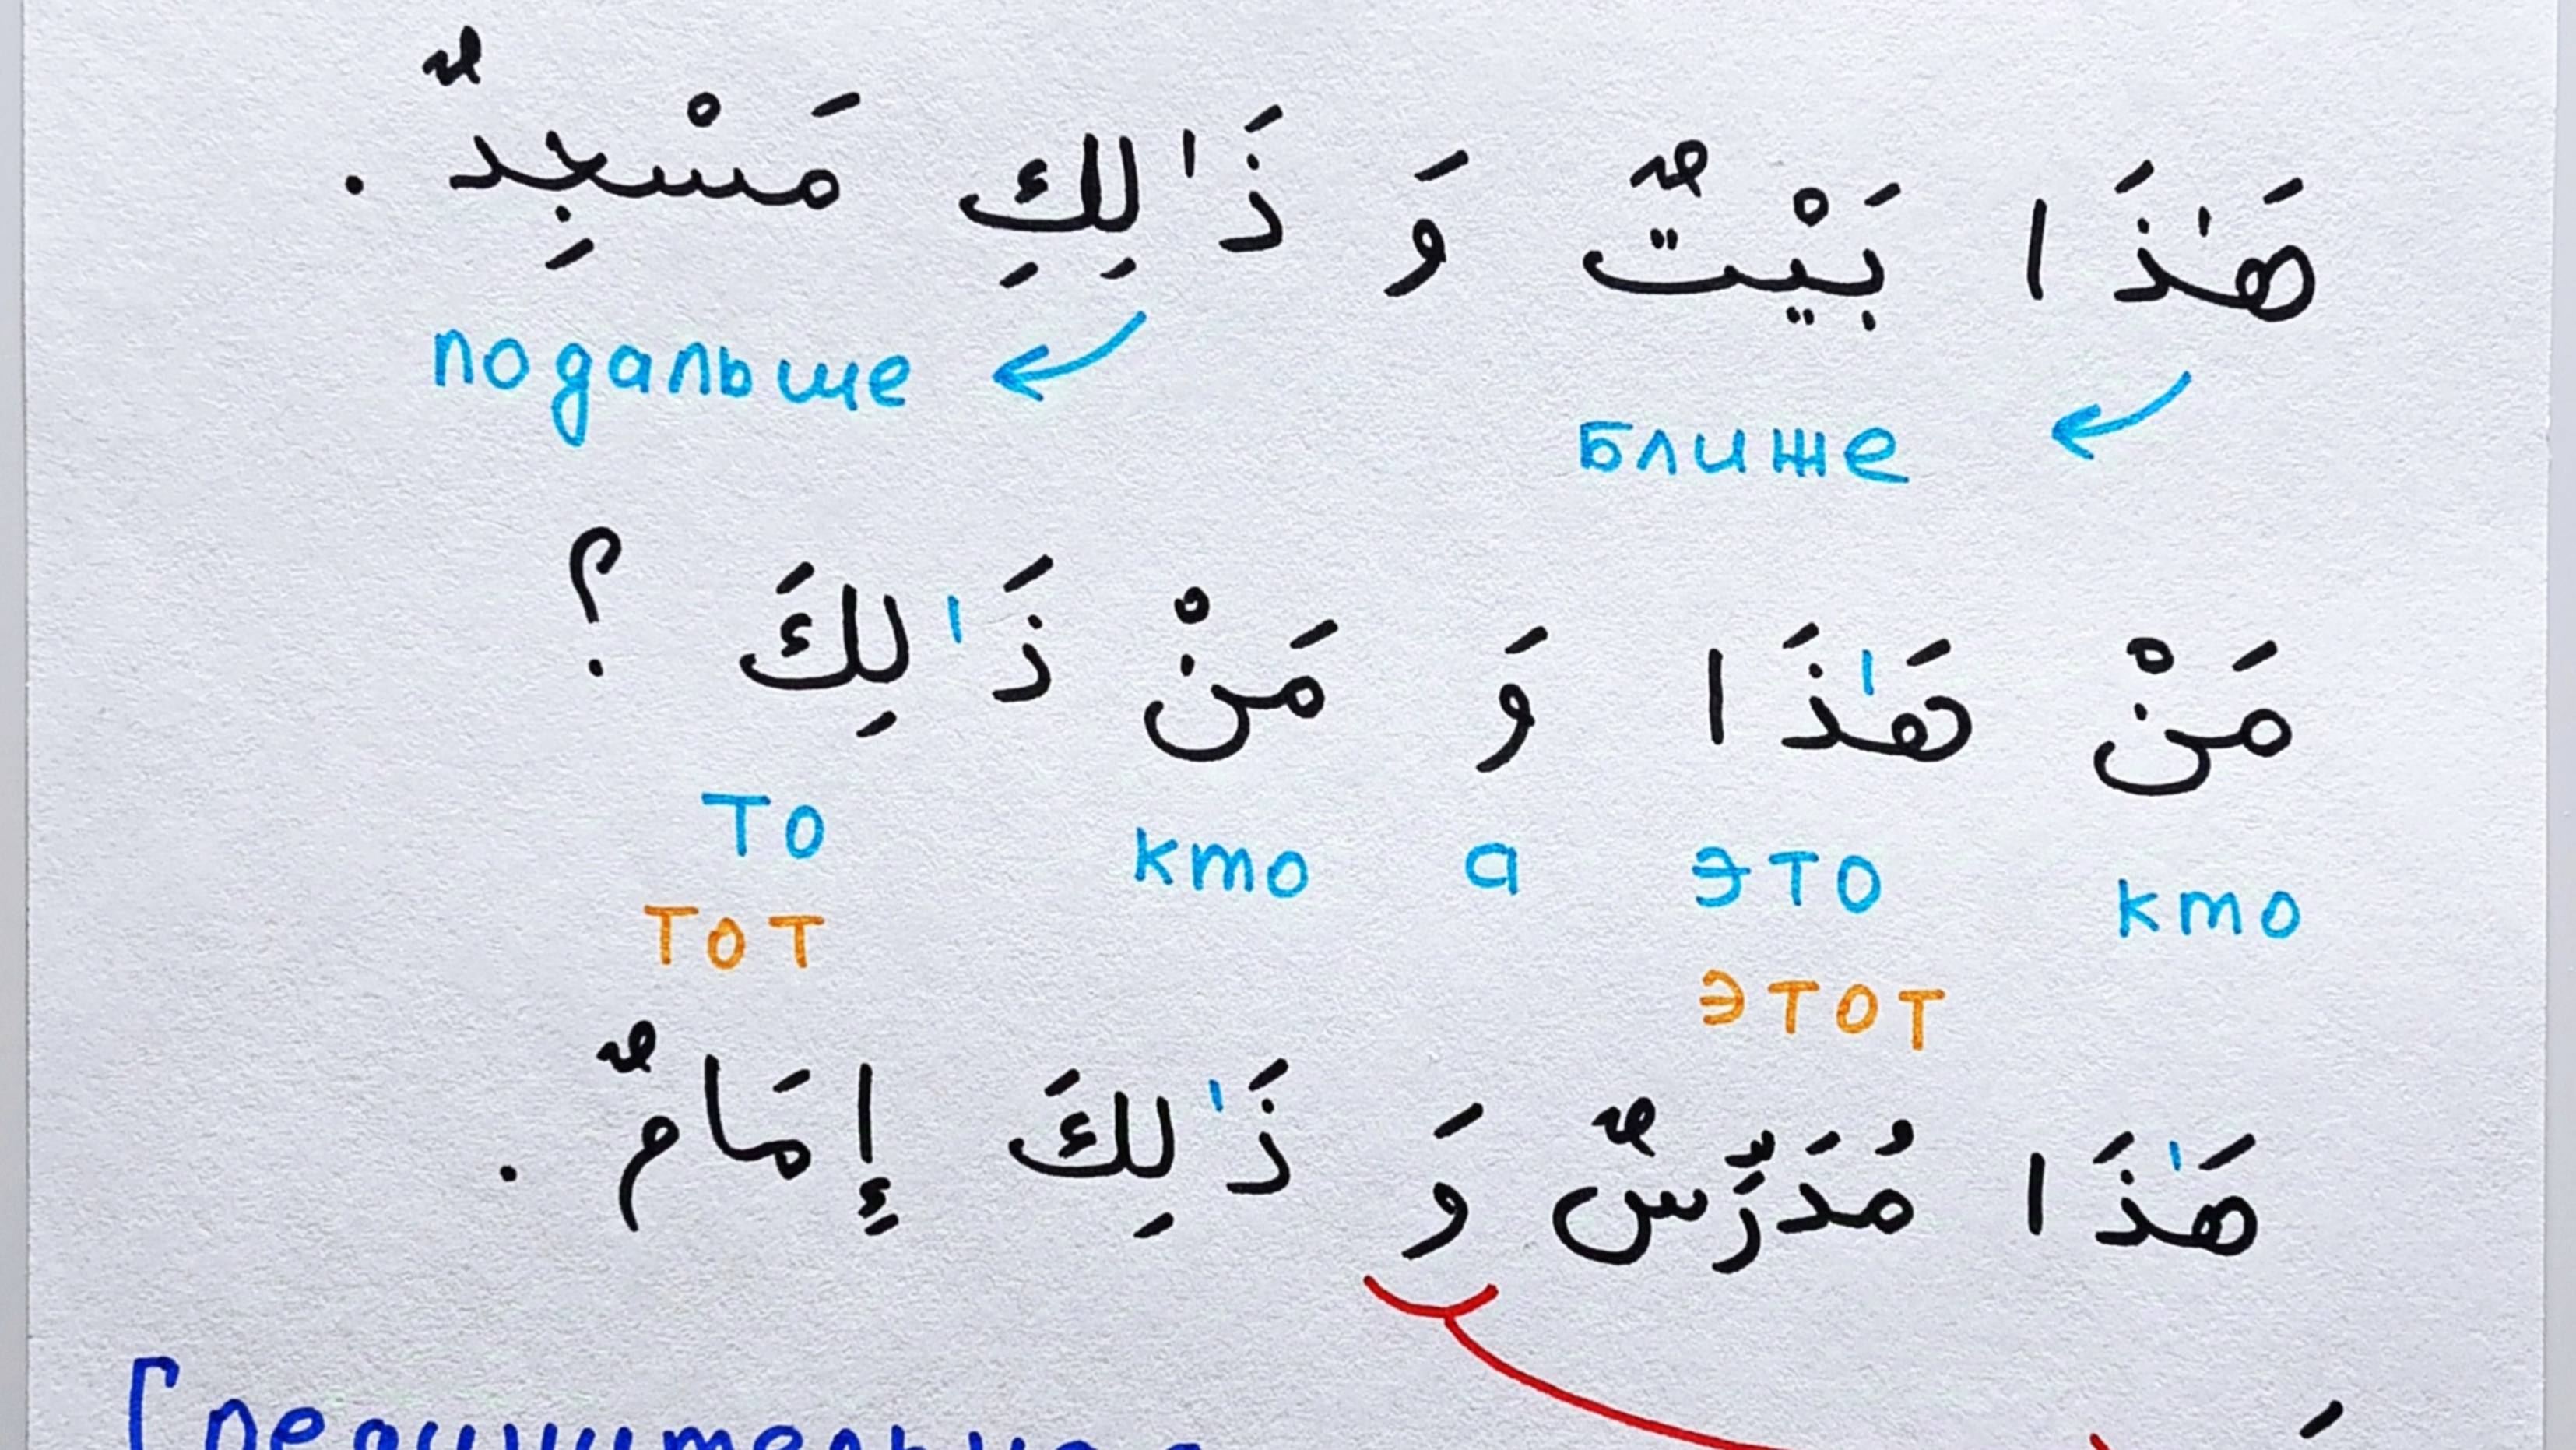 هَٰذَا بَيْتٌ وَ ذَٰلِكِ مَسْجِدٌ .
ближе подальше
مَنْ هَٰذَا وَ مَنْ ذَٰلِكَ ؟
кто это а кто то
этот тот
هَٰذَا مُدَرِّسٌ وَ ذَٰلِكَ إِمَامٌ .